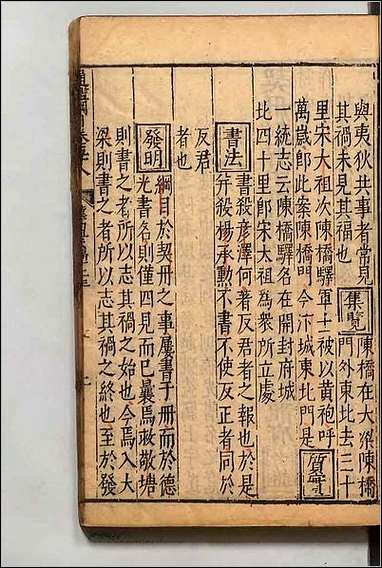 與夷狄共事者常見
其禍未見其福也
集覽
陳橋在大梁陳橋
門外東北去三十
里宋大祖次陳橋驛軍士被以黃袍呼
萬歲郎此案陳橋門今汴城東北門是
質實
一統志云陳橋驛名在開封府城
北四十里郎宋太祖為衆所立處
書法
書殺彥澤何著反君者之報也於是
并殺楊承勲不書不使反正者同於
反君
者也
發明
綱目於契丹之事屢書于冊而於德
光書名則僅四見而已曩焉救敬塘
則書之者所以志其禍之始也今焉入大
梁則書之者所以志其禍之終也至於發